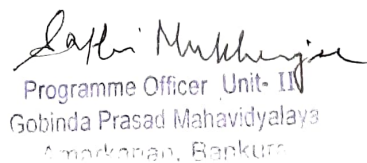 Mukherjee
Programme Officer Unit- II
Gobinda Prasad Mahavidyalaya
Amarkanan, Bankura